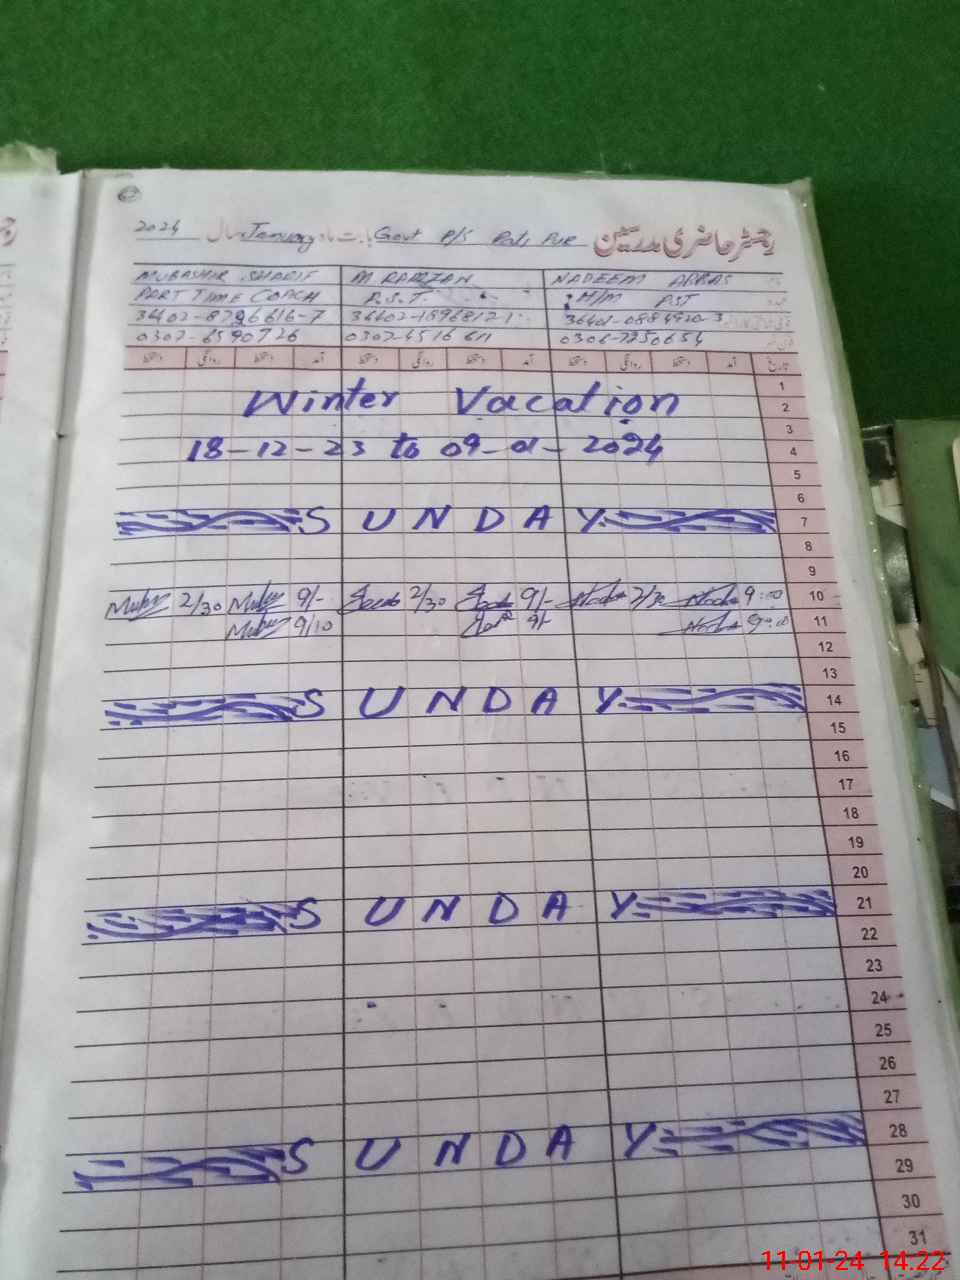 رجسٹر حاضری مدرسین Govt P/S بابت ماہ January سال 2024
MUBASHIR SHARIF M RAMZAN NADEEM ABBAS
PART TIME COACH P.S.T. H/M PST
36402-8796616-7
0307-6590726
تاریخ آمد دستخط روانگی دستخط آمد دستخط روانگی دستخط آمد دستخط روانگی دستخط
1
Winter Vacation 2
3
18-12-23 to 09-01-2024 4
5
6
SUNDAY 7
8
9
2/30 9/- 2/30 9/- 2/30 9:00 10
9/10 9/- 9:00 11
12
13
SUNDAY 14
15
16
17
18
19
20
SUNDAY 21
22
23
24
25
26
27
SUNDAY 28
29
30
31
11-01-24 14:22